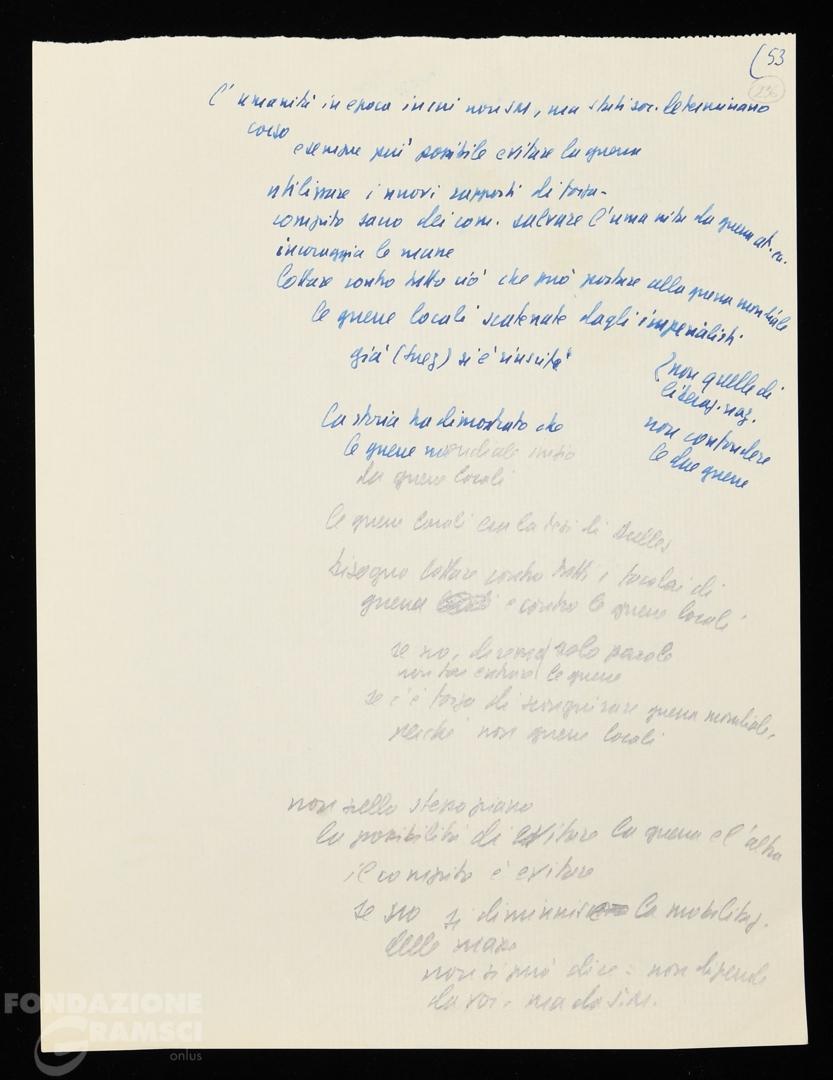 (53
236
L'umanità in epoca in cui non S.U., ma stati soc. determinano
corso
è sempre più possibile evitare la guerra
utilizzare i nuovi rapporti di forza -
compito sacro dei com. salvare l'umanità da guerra at.
incoraggia le masse
Lottare contro tutto ciò che può portare alla guerra mondiale
le guerre locali scatenate dagli imperialisti.
già (Suez) si è riusciti
(non quelle di
liberaz. naz.
non confondere
le due guerre
La storia ha dimostrato che
le guerre mondiali
da guerre locali
le guerre locali tesi di Dulles
bisogna lottare contro tutti i focolai di
guerra e contro le guerre locali
se no, diremo solo parole
non le guerre
se c'è forza di scongiurare guerra mondiale,
perché non guerre locali
non nello stesso piano
la possibilità di evitare la guerra e l'altra
il compito è evitare
se no si diminuisce la mobilitaz.
delle masse
non si può dire: non dipende
da voi - ma da S.U.
FONDAZIONE
GRAMSCI
onlus